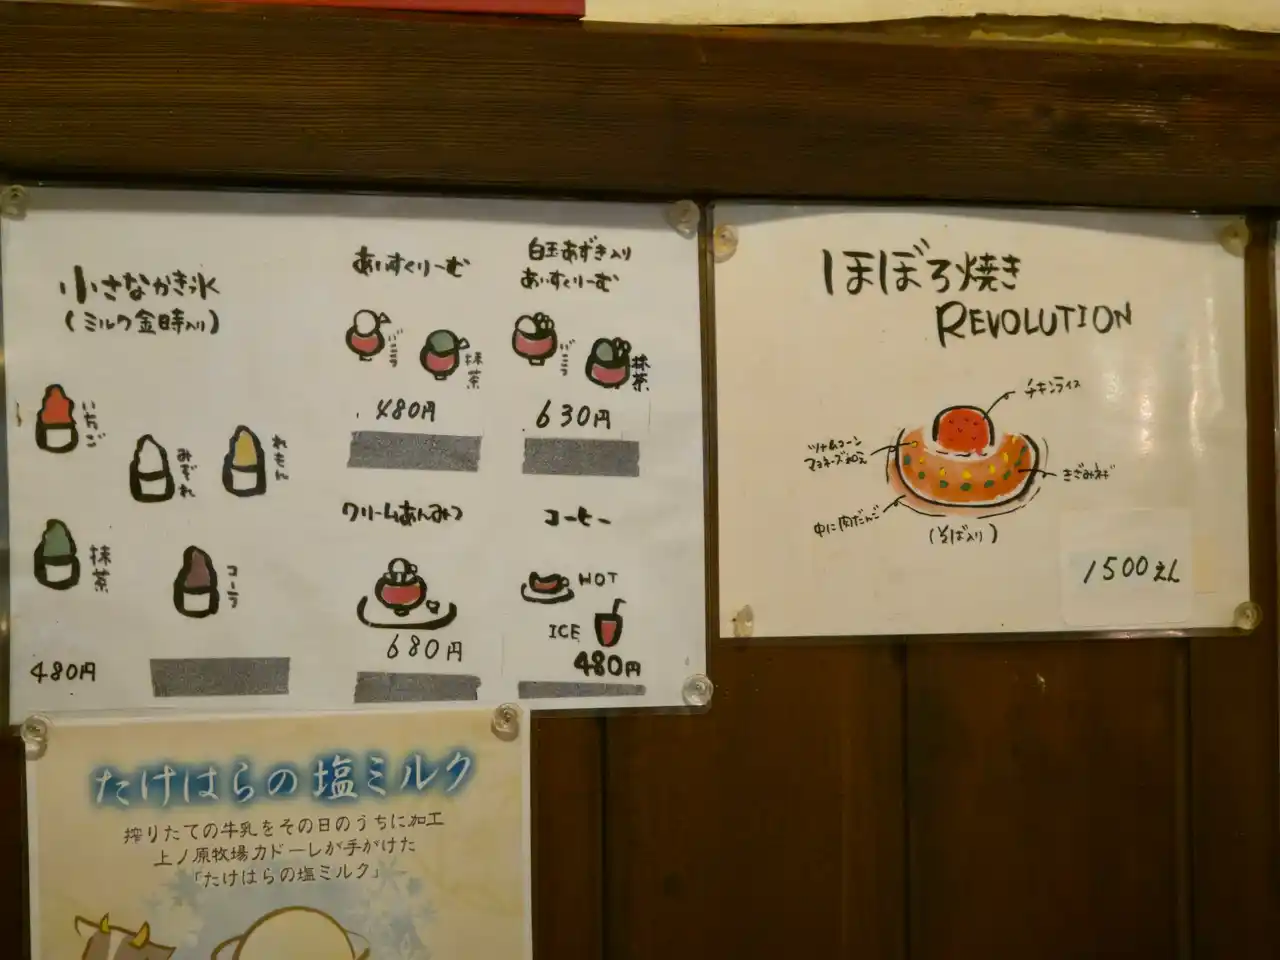 小さなかき氷
(ミルク金時入り)
いちご
みぞれ
れもん
抹茶
コーラ
480円
あいすくりーむ
バニラ
抹茶
480円
白玉あずき入り
あいすくりーむ
バニラ
抹茶
630円
クリームあんみつ
680円
コーヒー
HOT
ICE
480円
ほぼろ焼き
REVOLUTION
チキンライス
ツナ&コーン
マヨネーズ和え
きざみネギ
中に肉だんご
(そば入り)
1500えん
たけはらの塩ミルク
搾りたての牛乳をその日のうちに加工
上ノ原牧場カドーレが手がけた
「たけはらの塩ミルク」